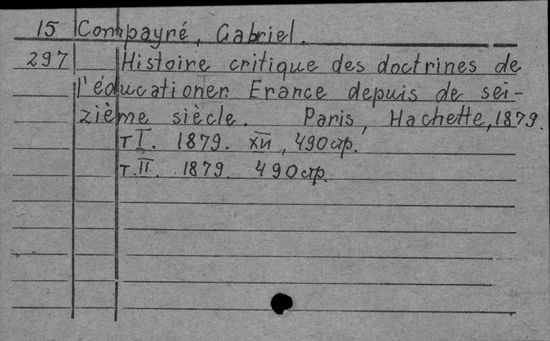 15 Compayré, Gabriel.
297 Histoire critique des doctrines de
l'éducation en Erance depuis de sei-
zième siècle. Paris, Hachette, 1879.
т I. 1879. XII, 490 стр.
т. II. 1879. 490 стр.